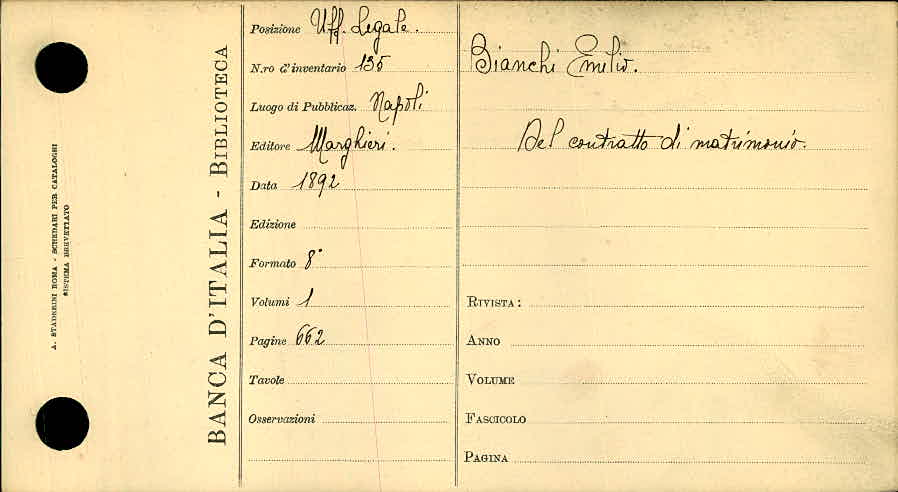 A. STADERINI ROMA - SCHEDARI PER CATALOGHI
SISTEMA BREVETTATO
BANCA D'ITALIA - BIBLIOTECA
Posizione Uff. Legale.
N.ro d'inventario 135
Luogo di Pubblicaz. Napoli
Editore Marghieri.
Data 1892
Edizione
Formato 8°
Volumi 1
Pagine 662
Tavole
Osservazioni
Bianchi Emilio.
Del contratto di matrimonio.
RIVISTA:
ANNO
VOLUME
FASCICOLO
PAGINA